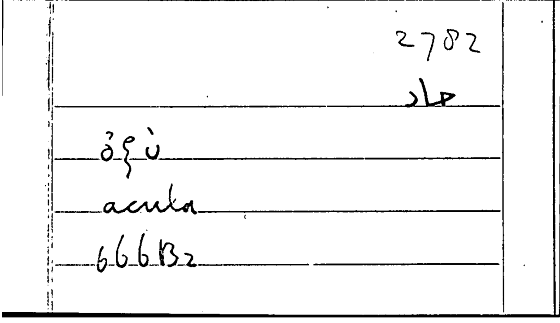 2782
حاد
ὀξὺ
acuta
666B2